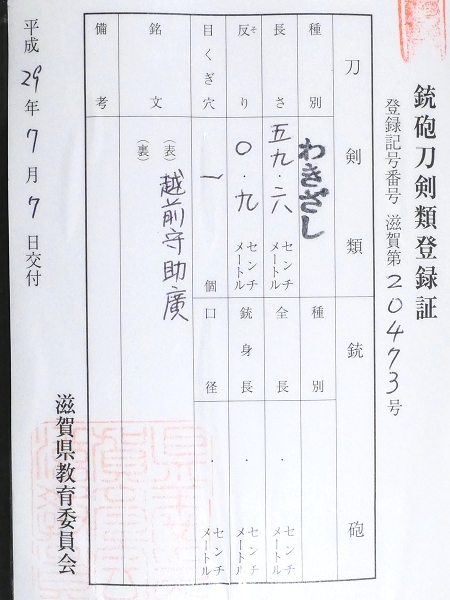 銃砲刀剣類登録証
登録記号番号 滋賀第20473号
刀剣類
銃砲
種別 わきざし
種別
長さ 五九・六 センチメートル
全長 ・ センチメートル
反り そ 〇・九 センチメートル
銃身長 ・ センチメートル
目くぎ穴 一 個
口径 ・ センチメートル
銘文 (表) 越前守助廣
(裏)
備考
平成29年7月7日交付
滋賀県教育委員会